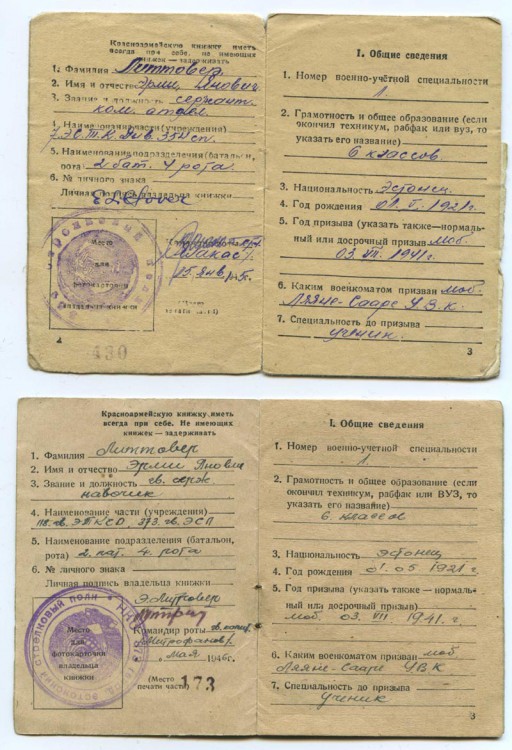 Красноармейскую книжку иметь
всегда при себе. Не имеющих
книжек — задерживать
1. Фамилия Литтовер
2. Имя и отчество Эрми Янович
3. Звание и должность сержант
ком. отдел.
4. Наименование части (учреждения)
5. Наименование подразделения (батальон,
рота) 2 бат. 4 рота.
6. № личного знака
Личная подпись владельца книжки
Место
для
фотокарточки
владельца книжки
430
I. Общие сведения
1. Номер военно-учётной специальности
1.
2. Грамотность и общее образование (если
окончил техникум, рабфак или вуз, то
указать его название)
6 классов
3. Национальность Эстонец.
4. Год рождения 01. V. 1921 г.
5. Год призыва (указать также—нормаль-
ный или досрочный призыв моб.
03. VII. 1941 г.
6. Каким военкоматом призван моб.
Ляяне-Сааре У.В.К.
7. Специальность до призыва
ученик.
3
Красноармейскую книжку иметь
всегда при себе. Не имеющих
книжек — задерживать
1. Фамилия Литтовер
2. Имя и отчество Эрми Янович
3. Звание и должность гв. серж.
наводчик
4. Наименование части (учреждения)
118 гв. ЭТКСД, 373 гв. ЭСП
5. Наименование подразделения (батальон,
рота) 2. бат. 4. рота
6. № личного знака
Личная подпись владельца книжки
Э. Литтовер
СТРЕЛКОВЫЙ ПОЛК
Командир роты гв. капит.
Митрофанов
мая 1946 г.
Место
для
фотокарточки
владельца
книжки
(Место
печати части) 173
I. Общие сведения
1. Номер военно-учетной специальности
1
2. Грамотность и общее образование (если
окончил техникум, рабфак или ВУЗ, то
указать его название)
6. классов
3. Национальность эстонец
4. Год рождения 01. 05 1921 г.
5. Год призыва (указать также — нормаль-
ный или досрочный призыв)
моб. 03. VII 1941. г.
6. Каким военкоматом призван моб.
Ляяне-Сааре УВК
7. Специальность до призыва
ученик
3